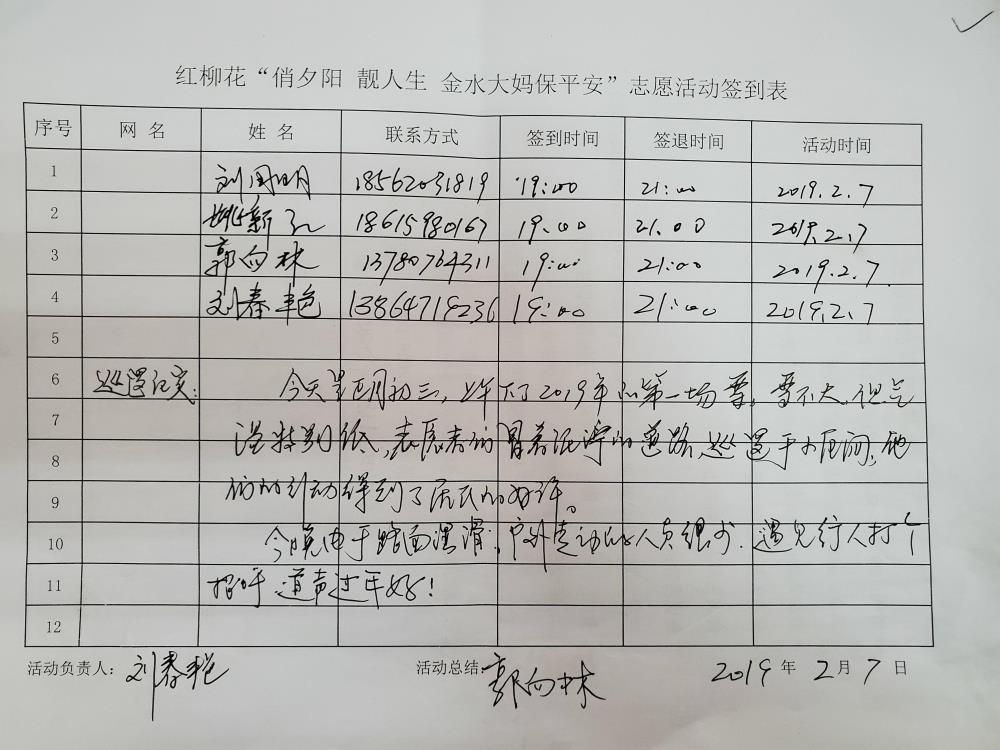 红柳花“俏夕阳 靓人生 金水大妈保平安”志愿活动签到表
序号 网 名 姓 名 联系方式 签到时间 签退时间 活动时间
1 刘国明 18562031819 19:00 21:00 2019.2.7
2 姚新 18615980167 19.00 21.00 2019.2.7
3 郭向林 13780764311 19:00 21:00 2019.2.7.
4 刘春艳 13864719236 19:00 21:00 2019.2.7
5
6 巡逻纪实: 今天是正月初三,上午下了2019年的第一场雪,雪不大,但气
7 温特别低,志愿者们冒着泥泞的道路,巡逻于小区间,他
8
9 们的行动得到了居民的好评。
10 今晚由于路面湿滑,户外走动的人员很少.遇见行人打个
11 招呼 道声过年好!
12
活动负责人: 刘春艳 活动总结: 郭向林 2019 年 2 月 7 日